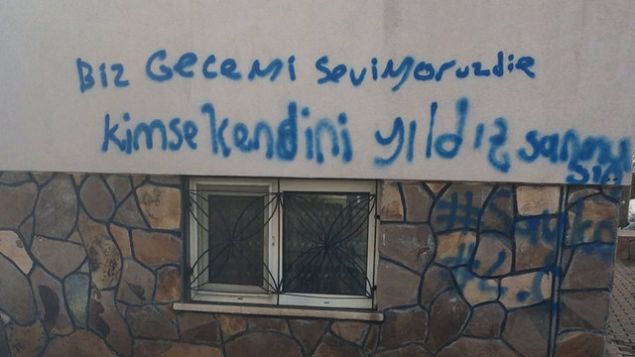 Biz Gecemi seviyoruzdie
kimse kendini yıldız sanma
sın